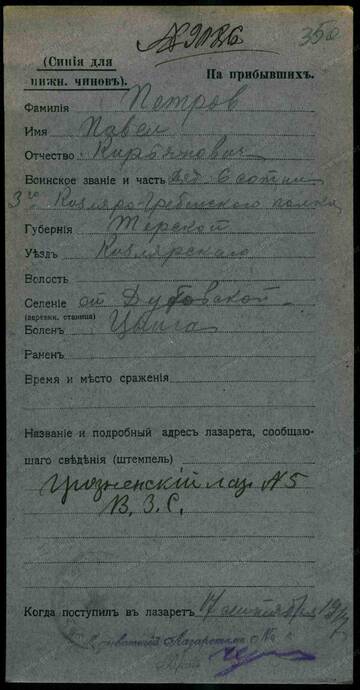 № 9086
350
(Синія для
нижн. чиновъ).
На прибывшихъ.
Фамилія Петров
Имя Павел
Отчество
Воинское званіе и часть 6 сотни
3го Кизляро-Гребенского полка
Губернія Терской
Уѣздъ Кизлярскаго
Волость
Селеніе ст Дубовской
(деревня, станица)
Боленъ Цынга
Раненъ
Время и мѣсто сраженія
Названіе и подробный адресъ лазарета, сообщаю-
щаго свѣдѣнія (штемпель)
Грозненскій лаз. № 5
В. З. С.
Когда поступилъ въ лазаретъ 17 сентября